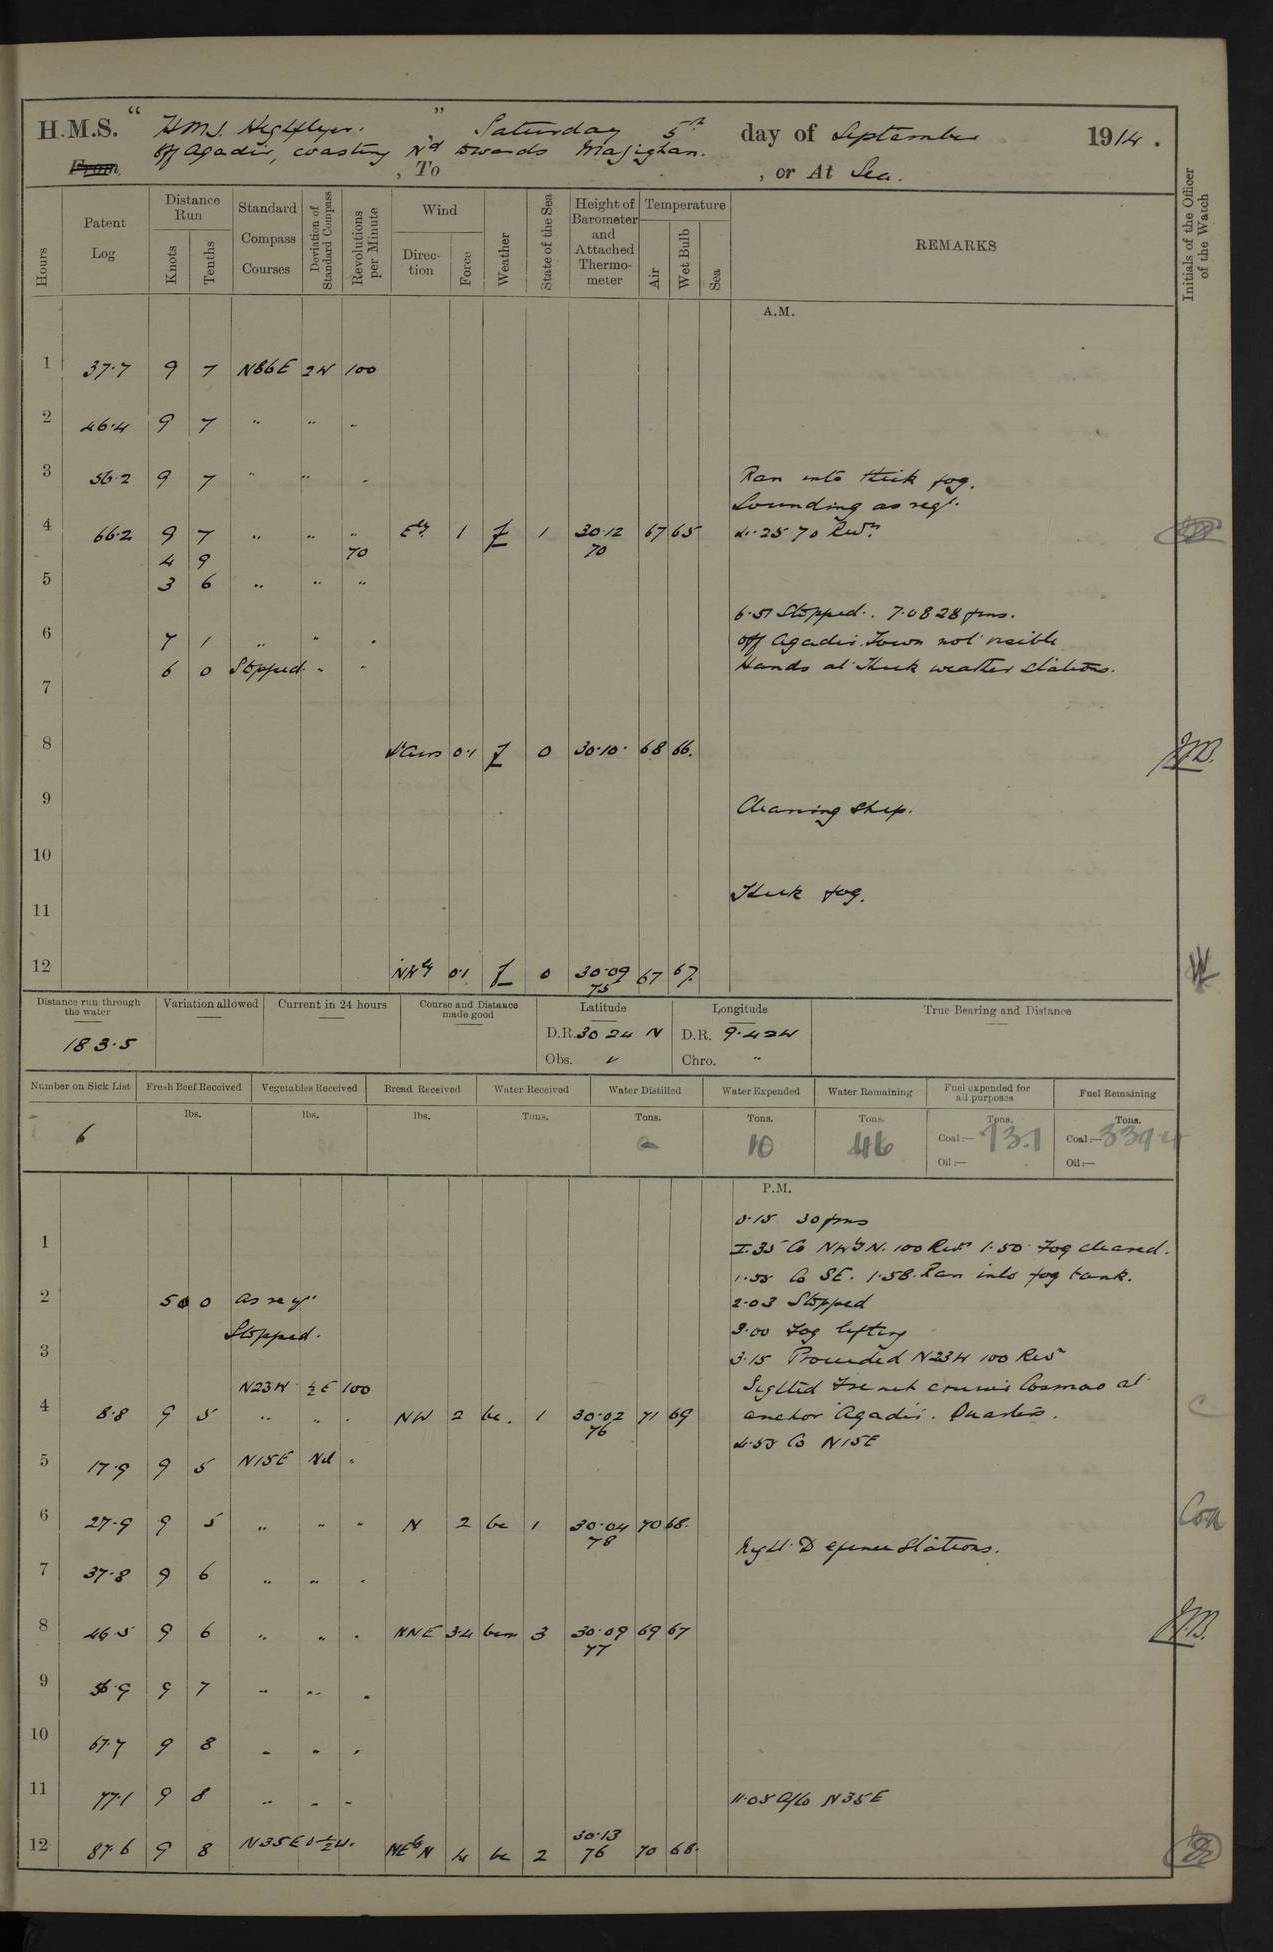 H.M.S. " HMS Highflyer. ", Saturday 5th day of September 1914.
off Agadir, coasting Nd towards Mazighan.
From , To , or At Sea.
Hours
Patent Log
Distance Run
Knots
Tenths
Standard Compass Courses
Deviation of Standard Compass
Revolutions per Minute
Wind
Direction
Force
Weather
State of the Sea
Height of Barometer and Attached Thermometer
Temperature
Air
Wet Bulb
Sea
REMARKS
Initials of the Officer of the Watch
A.M.
1 37.7 9 7 N86E 2W 100
2 46.4 9 7 " " "
3 56.2 9 7 " " " Ran into thick fog.
Sounding as reqd.
4 66.2 9 7 " " " Ely 1 f 1 30.12 67 65 4.25 70 Revs
4 9 70 70
5 3 6 " " "
6.51 Stopped. 7.08 28 fms.
6 7 1 " " " off Agadir. Town not visible
6 0 Stopped " " Hands at thick weather stations.
7
8 Lt airs 0.1 f 0 30.10 68 66. JMB.
9 Cleaning ship.
10
Thick fog.
11
12 NWly 0.1 f 0 30.09 67 67.
75
Distance run through the water
183.5
Variation allowed
Current in 24 hours
Course and Distance made good
Latitude
D.R. 30 24 N
Obs. "
Longitude
D.R. 9.42W
Chro. "
True Bearing and Distance
Number on Sick List
6
Fresh Beef Received
lbs.
Vegetables Received
lbs.
Bread Received
lbs.
Water Received
Tons.
Water Distilled
Tons.
0
Water Expended
Tons.
10
Water Remaining
Tons.
46
Fuel expended for all purposes
Tons.
Coal:— 73.1
Oil:—
Fuel Remaining
Tons.
Coal:— 339.4
Oil:—
P.M.
0.15 30 fms
1 I.35 Co NWbyN. 100 Revs 1.50 Fog cleared.
1.55 Co SE. 1.58. Ran into fog bank.
2 5 0 as reqd 2.03 Stopped
Stopped. 3.00 Fog lifting
3 3.15 Proceeded N23W 100 Revs
N23W ½E 100 Sighted French cruiser Cosmao at
4 8.8 9 5 " " " NW 2 bc. 1 30.02 71 69 anchor Agadir. Quarters.
76
4.55 Co N15E
5 17.9 9 5 N15E Nil "
6 27.9 9 5 " " " N 2 bc 1 30.04 70 68.
78
Night Defence Stations.
7 37.8 9 6 " " "
8 46.5 9 6 " " " NNE 3.4 bcm 3 30.09 69 67 JMB.
77
9 56.9 9 7 " " "
10 67.7 9 8 " " "
11 77.1 9 8 " " " 11.05 A/Co N35E
12 87.6 9 8 N35E ½W. NEbN 4 bc 2 30.13 70 68.
76